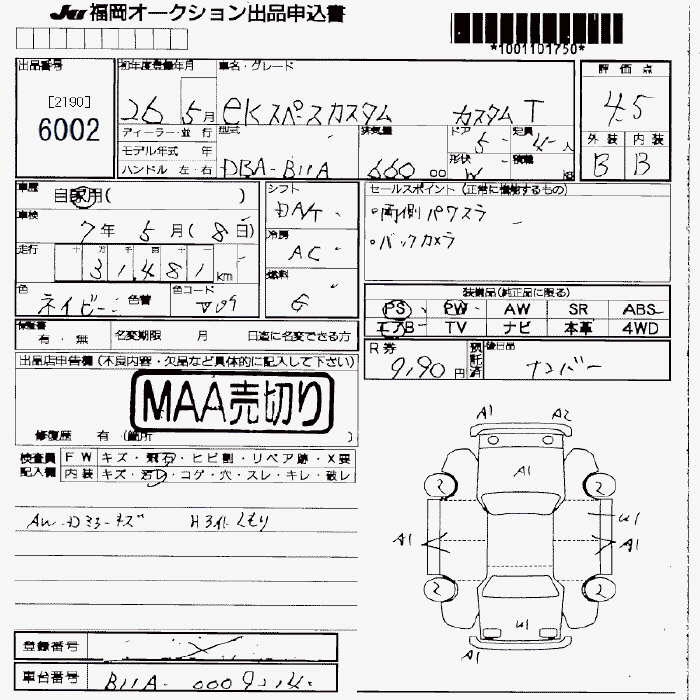 JU 福岡オークション出品申込書
*1001101750*
出品番号
[2190]
6002
初年度登録年月
26 5月
車名・グレード
eKスペースカスタム カスタムT
ディーラー・並行
モデル年式 年
ハンドル 左・右
型式
DBA-B11A
排気量
660 00
ドア 5
定員 4人
形状 W
積載 kg
評価点
4.5
外装 内装
B B
車歴
自家用( )
車検
7年 5月(8日)
走行
31,481km
色
ネイビー 色替
色コード
シフト
DA/T
冷房
AC
燃料
G
セールスポイント(正常に機能するもの)
・両側パワスラ
・バックカメラ
装備品(純正品に限る)
PS PW AW SR ABS
エアB TV ナビ 本革 4WD
保証書
有・無
名変期限 月 日迄に名変できる方
R券
9,190円
預託済
後日品
ナンバー
出品店申告欄(不良内容・欠品など具体的に記入して下さい)
MAA売切り
修復歴 有(箇所 )
検査員記入欄
FW キズ・飛石・ヒビ割・リペア跡・X要
内装 キズ・汚レ・コゲ・穴・スレ・キレ・破レ
A1 A2
A1
2 2
U1
A1 A1
2 2
U1
A1
登録番号
車台番号 B11A-